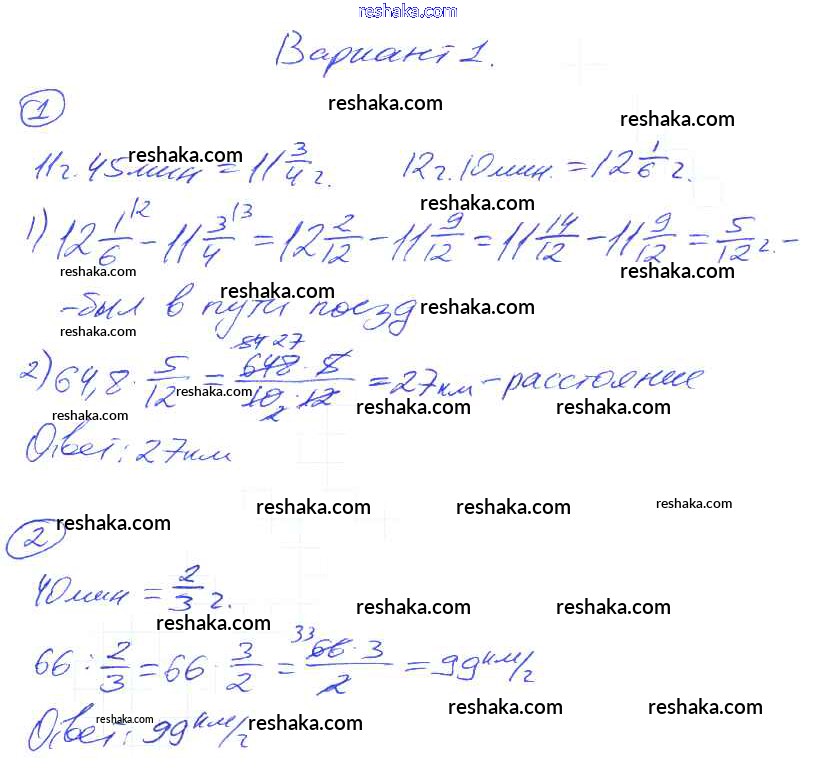 reshaka.com
Вариант 1.
reshaka.com reshaka.com
1
11 ч. 45 мин = 11 3/4 ч. 12 ч. 10 мин. = 12 1/6 ч.
reshaka.com
reshaka.com
1) 12 1/6 |2 - 11 3/4 |3 = 12 2/12 - 11 9/12 = 11 14/12 - 11 9/12 = 5/12 ч. -
reshaka.com reshaka.com
- был в пути поезд
reshaka.com reshaka.com
reshaka.com
2) 64,8 · 5/12 = 648 · 5/10 · 12 = 27 км - расстояние
54 27
2
reshaka.com
reshaka.com reshaka.com reshaka.com
Ответ: 27 км
reshaka.com reshaka.com reshaka.com
reshaka.com
2
40 мин = 2/3 ч.
reshaka.com reshaka.com reshaka.com
66 : 2/3 = 66 · 3/2 = 66 · 3/2 = 99 км/ч
33
reshaka.com reshaka.com
Ответ: 99 км/ч
reshaka.com reshaka.com